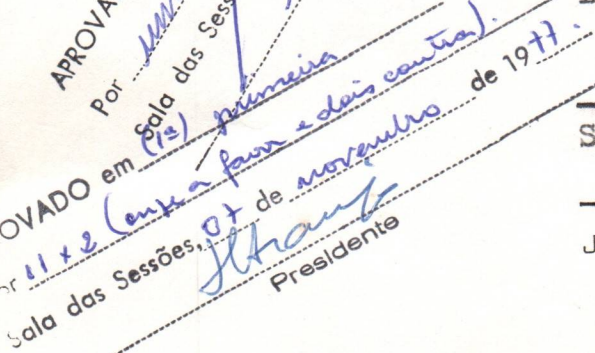 APROVA
Por
Sala das Sess
OVADO em (1ª) primeira
or 11 x 2 (onze a favor e dois contra).
Sala das Sessões, 07 de novembro de 1977.
Presidente
S
J